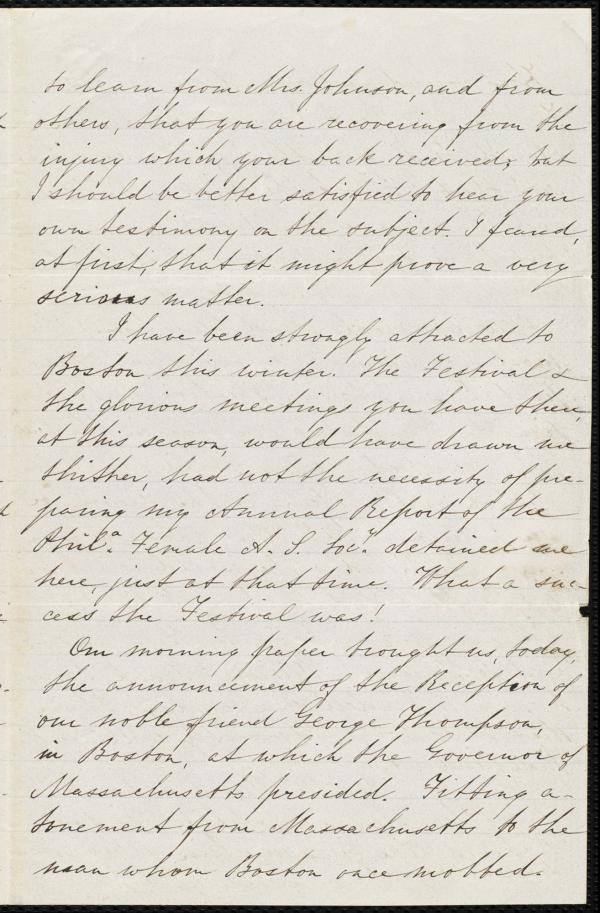 to learn from Mrs. Johnson, and from
others, that you are recovering from the
injury which your back received; but
I should be better satisfied to hear your
own testimony on the subject. I feared,
at first, that it might prove a very
serious matter.
I have been strongly attracted to
Boston this winter. The Festival &
the glorious meetings you have there,
at this season, would have drawn me
thither, had not the necessity of pre-
paring my Annual Report of the
Phila. Female A. S. Socy. detained me
here, just at that time. What a suc-
cess the Festival was!
Our morning paper brought us, today,
the announcement of the Reception of
our noble friend George Thompson,
in Boston, at which the Governor of
Massachusetts presided. Fitting a-
tonement from Massachusetts to the
man whom Boston once mobbed.